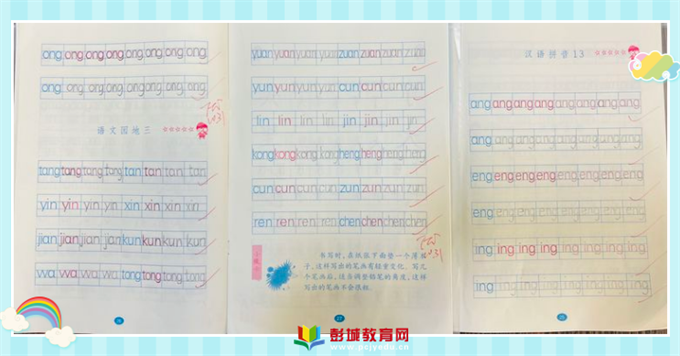 ong ong ong ong ong ong ong ong
ong ong ong ong ong ong ong ong
语文园地三
tang tang tang tang tan tan tan tan
yin yin yin yin xin xin xin xin
jian jian jian jian kun kun kun kun
wa wa wa wa tang tong tong tong
16
yuan yuan yuan yuan zuan zuan zuan zuan
yun yun yun yun cun cun cun cun
lin lin lin lin jin jin jin jin
kong kong kong kong heng heng heng heng
cun cun cun cun zun zun zun zun
ren ren ren ren chen chen chen chen
书写时,在纸张下面垫一个薄垫
子,这样写出的笔画有轻重变化。写几
个笔画后,适当调整铅笔的角度,这样
写出的笔画不会很粗。
17
汉语拼音13
ang ang ang ang ang ang ang ang
ang ang ang ang ang ang ang ang
eng eng eng eng eng eng eng eng
eng eng eng eng eng eng eng eng
ing ing ing ing ing ing ing ing
ing ing ing ing ing ing ing ing
彭城教育网
www.pcjyedu.cn